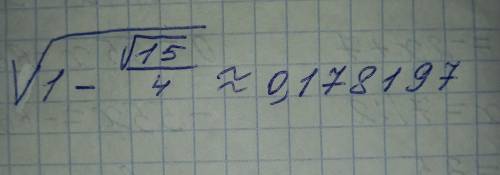 √(1 - √15/4) ≈ 0,178197